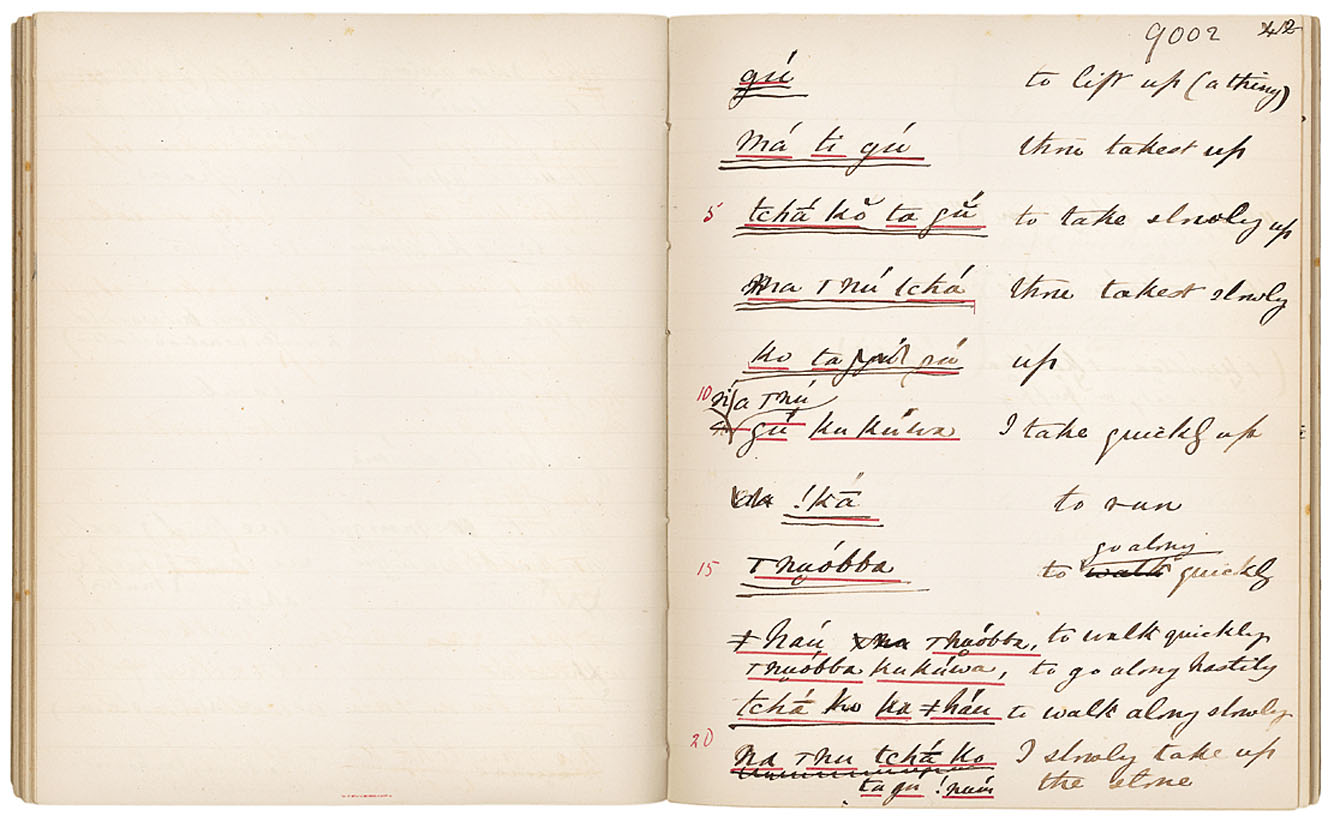 9002 42
gú to lift up (a thing)
Má ti gú thou takest up
5 tchá kŏ ta gú to take slowly up
Ma ⊤ nú tchá thou takest slowly
ko ta gú up
10 ń/a ⊤ nú
gú ku kúwa I take quickly up
!kā to run
go along
15 ⊤ nu̥óbba to walk quickly
ǂ háu ⊤ nu̥óbba, to walk quickly
⊤ nu̥óbba ku kúwa, to go along hastily
tchá ko ka ǂ háu to walk along slowly
20 na ⊤ nu tchá ko I slowly take up
ta gu ! núm the stone